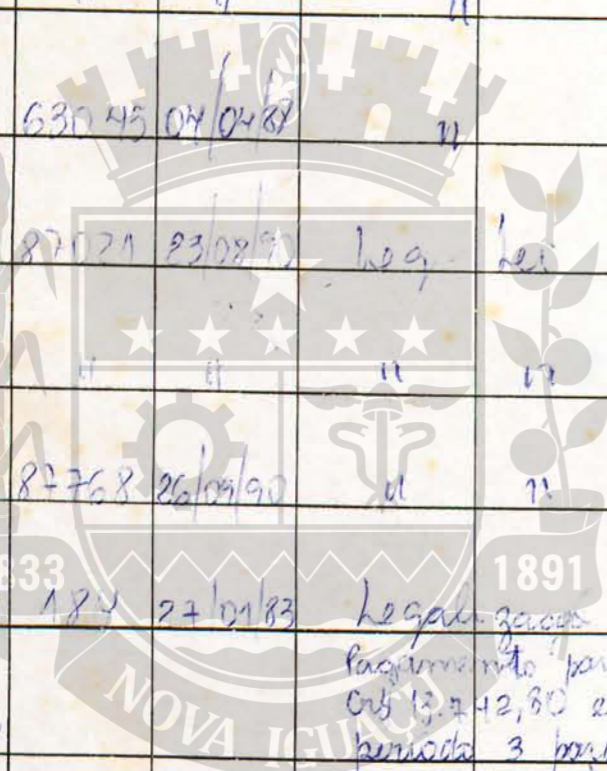 " "
63045 04/04/88 "
87021 23/08/90 Leg. Lei
" " " "
87768 26/09/90 " "
1833 1891
184 27/01/83 Legalização
Pagamento par
Cr$ 13.742,80 e
período 3 par
NOVA IGUAÇU